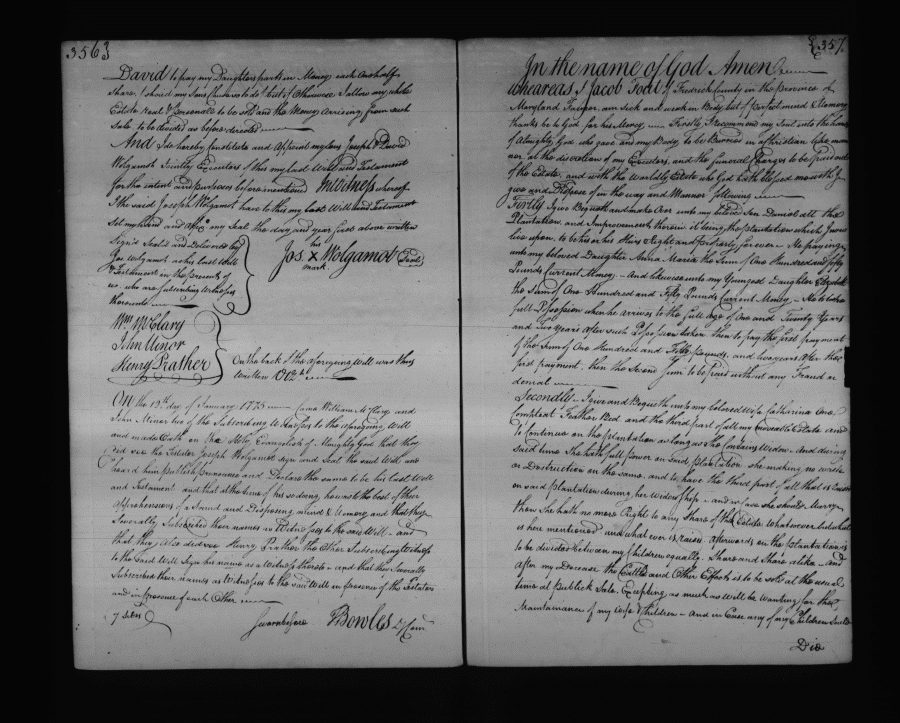 3563
David to pay my Daughters parts in Money each One half
Share, I do will my Sons Authors to do but if Otherwise I allow my whole
Estate Real & Personale to be Sold and the Money Arrising from such
Sale to be divided as before directed
And I do hereby Constitute and Appoint my Sons Joseph & David
Wolgamot Jointly Executors of this my last Will and Testament
for the intent and purposes before mentioned In witness whereof
I the said Joseph Wolgamot have to this my last Will and Testament
Set my hand and affix my Seal the day and year first above written
Sign'd Seal'd and Delivered by
Joe Wolgamot as his last Will
& Testament in the presents of
us who are Subscribing Witnesses
thereunto
his
Jos. X Wolgamot Seal
mark
Wm McClary
John Minor
Henry Prather
On the back of the aforegoing Will was thus
Written Viz.
On the 13th day of January 1775 Came William McClary and
John Minor two of the Subscribing Witnesses to the aforegoing Will
and made Oath on the Holy Evangelists of Almighty God that they
did see the Testator Joseph Wolgamot sign and Seal the said Will and
heard him publish pronounce and Declare the same to be his last Will
and Testament and that at the time of his so doing he was to the best of their
apprehensions of a Sound and Disposing mind & Memory and that they
Severally Subscribed their names as Witnesses to the said Will and
that they also did see Henry Prather the Other Subscribing Witness
to the said Will Sign his name as a Witness thereto and that they Severally
Subscribed their names as Witnesses to the said Will in presence of the Testator
and in presence of each Other
7 sides
Sworn before T Bowles Dy Com
357
In the name of God Amen
Wheareas I Jacob Toal of Fredrick County in the Province of
Maryland Farmer, am Sick and weak in Body but of Perfect mind & Memory
thanks be to God for his Mercy Firstly I recommend my Soul into the hands
of Almighty God who gave it and my Body to be Burried in a Christian like man
ner at the discretion of my Executors, and the funeral Charges to be paid out
of the Estate, and with the Worldly Estate who God hath blessed me with I
give and Dispose of in the way and Manner following
Firstly I give Bequeth and make Over unto my belove Son Daniel all the
Plantation and Improvements thereon it being the plantation which I now
live upon, to be his or his Heirs Right and Property for ever He paying
unto my beloved Daughter Anna Maria the Sum of One Hundred and fifty
Pounds Current Money And likewise unto my Youngest Daughter Elizabeth
the Sum of One Hundred and Fifty Pounds Current Money He to take
full Possession when he arrives to the full age of One and Twenty Years
and two Years after such Possession taken then to pay the first payment
of the Sum of One Hundred and Fifty pounds, and two years after the
first payment, then the Second Sum to be paid without any Fraud or
denial
Secondly I give and Bequeth unto my beloved wife Catharina One
Compleat Feather Bed and the third part of all my moveable Estate and
to Continue on the plantation as long as She Contains Widow And during
said time She hath full power on said plantation she making no waste
or Destruction on the same, and to have the third part of all that is raised
on said plantation during her Widowship and in Case she should Marry
then She hath no more Right to any Share of the Estate Whatsoever but what
is here mentioned and what ever is raised afterwards on the plantation is
to be divided between my Children equally, Share and Share alike And
after my Decease the Cattle and Other Effects is to be sold at the usual
time at Publick Sale, Excepting as much as will be wanting for the
Maintainance of my Wife & Children And in Case any of my Children should
Die